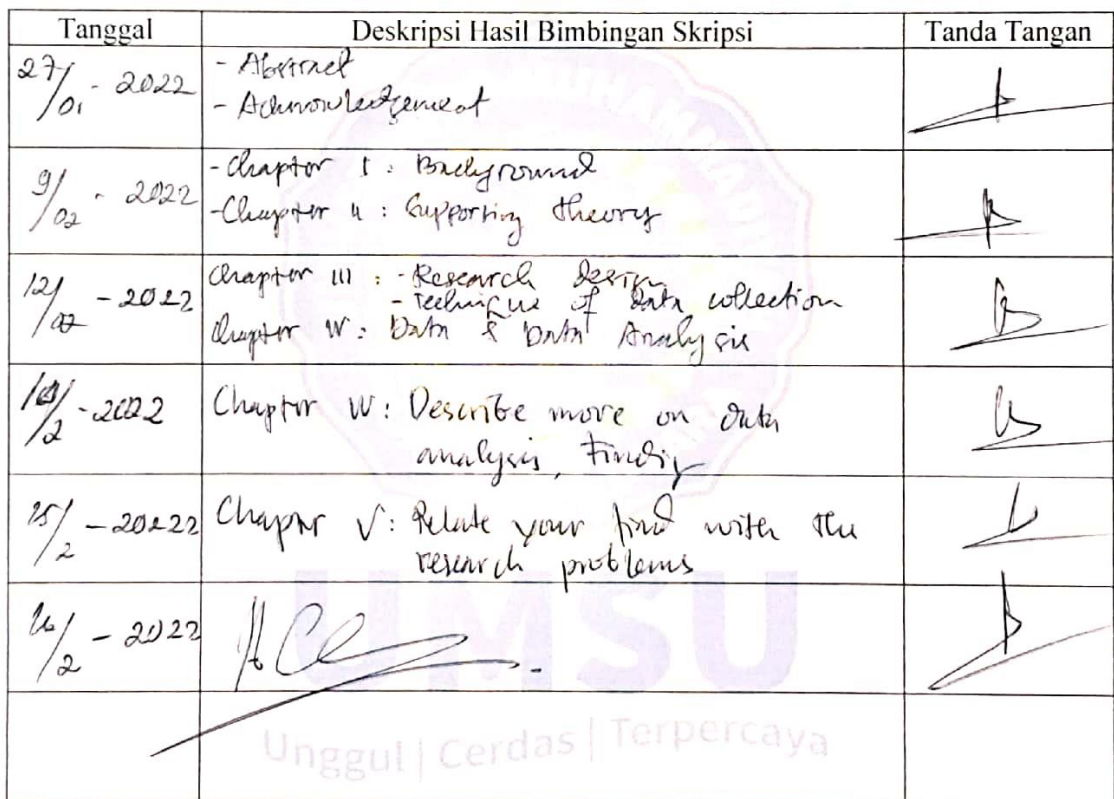 Tanggal Deskripsi Hasil Bimbingan Skripsi Tanda Tangan
27/01 - 2022 - Abstract
- Acknowledgement
9/02 - 2022 - Chapter I : Background
- Chapter II : Supporting theory
12/02 - 2022 Chapter III : - Research design
- Technique of data collection
Chapter IV : Data & Data Analysis
/2 - 2022 Chapter IV : Describe more on data
analysis, Finding
/2 - 2022 Chapter V : Relate your find with the
research problems
/2 - 2022
UMSU
Unggul | Cerdas | Terpercaya